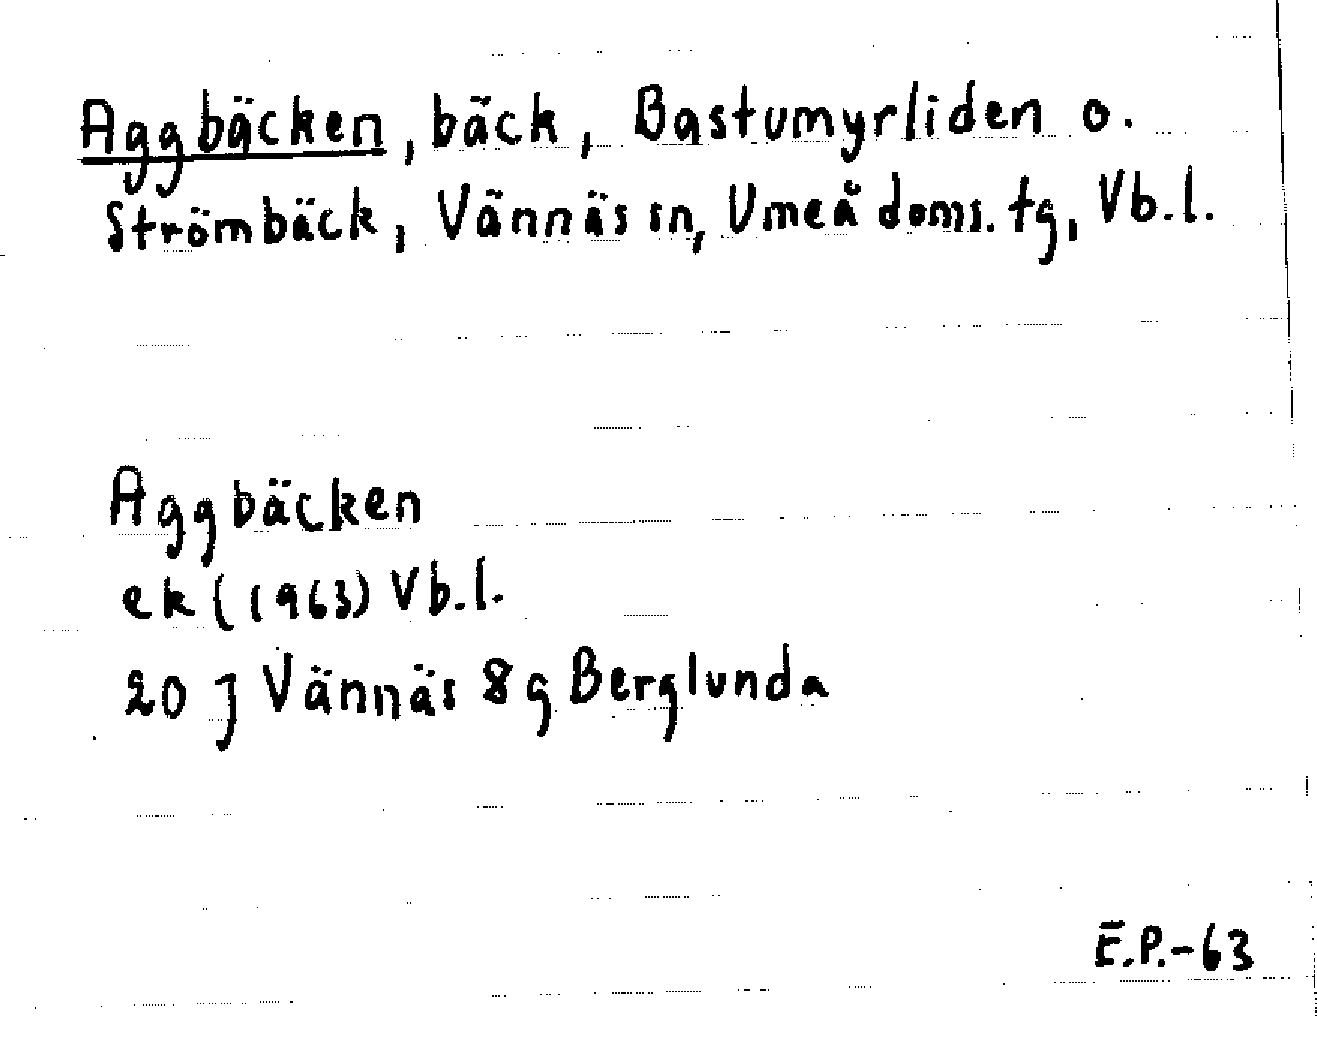 Aggbäcken, bäck, Bastumyrliden o.
Strömbäck, Vännäs sn, Umeå doms. tg, Vb.l.
Aggbäcken
ek (1963) Vb.l.
20 J Vännäs 8g Berglunda
E.P.-63